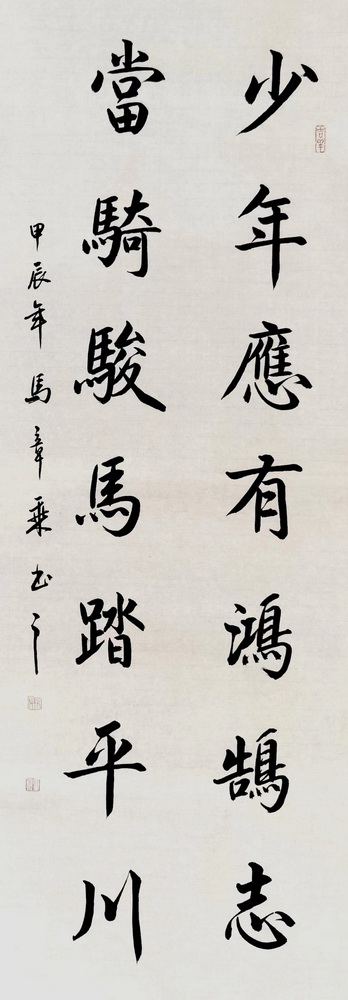 少年應有鴻鵠志
當騎駿馬踏平川
甲辰年馬章乘书